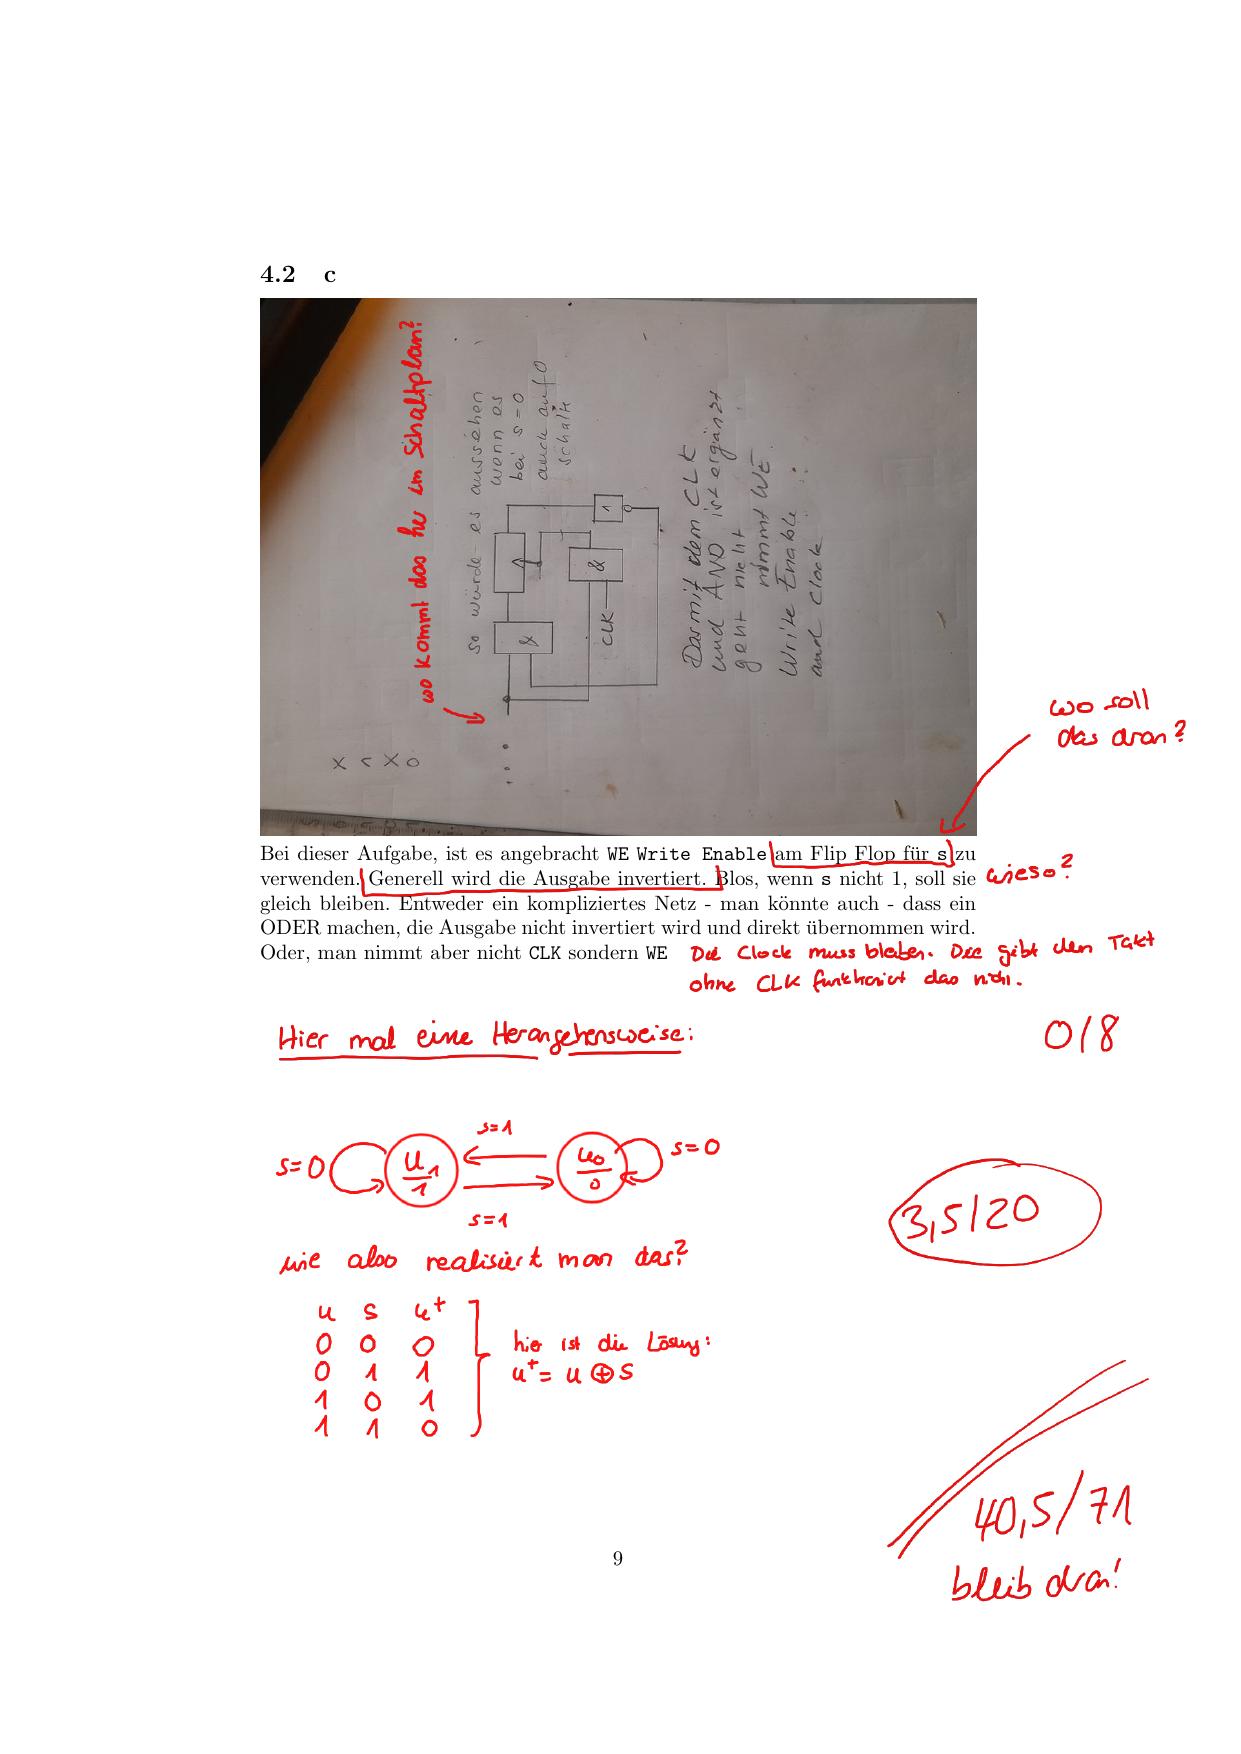 4.2 c
wo kommt das her im Schaltplan?
so würde es aussehen
wenn es
bei s=0
auch auf 0
schalt
1
&
&
CLK
Das mit dem CLK
und AND ist ergänzt
geht nicht
nimmt WE
Write Enable
and Clock
x < x 0
wo soll
das dran?
Bei dieser Aufgabe, ist es angebracht WE Write Enable am Flip Flop für s zu
verwenden. Generell wird die Ausgabe invertiert. Blos, wenn s nicht 1, soll sie
wieso?
gleich bleiben. Entweder ein kompliziertes Netz - man könnte auch - dass ein
ODER machen, die Ausgabe nicht invertiert wird und direkt übernommen wird.
Oder, man nimmt aber nicht CLK sondern WE
Die Clock muss bleiben. Die gibt den Takt
ohne CLK funktioniert das nicht.
Hier mal eine Herangehensweise:
0/8
s=1
s=0 u1/1 u0/0 s=0
s=1
3,5/20
wie also realisiert man das?
u s u⁺
0 0 0 hier ist die Lösung:
0 1 1 u⁺= u ⊕ s
1 0 1
1 1 0
40,5/71
bleib dran!
9